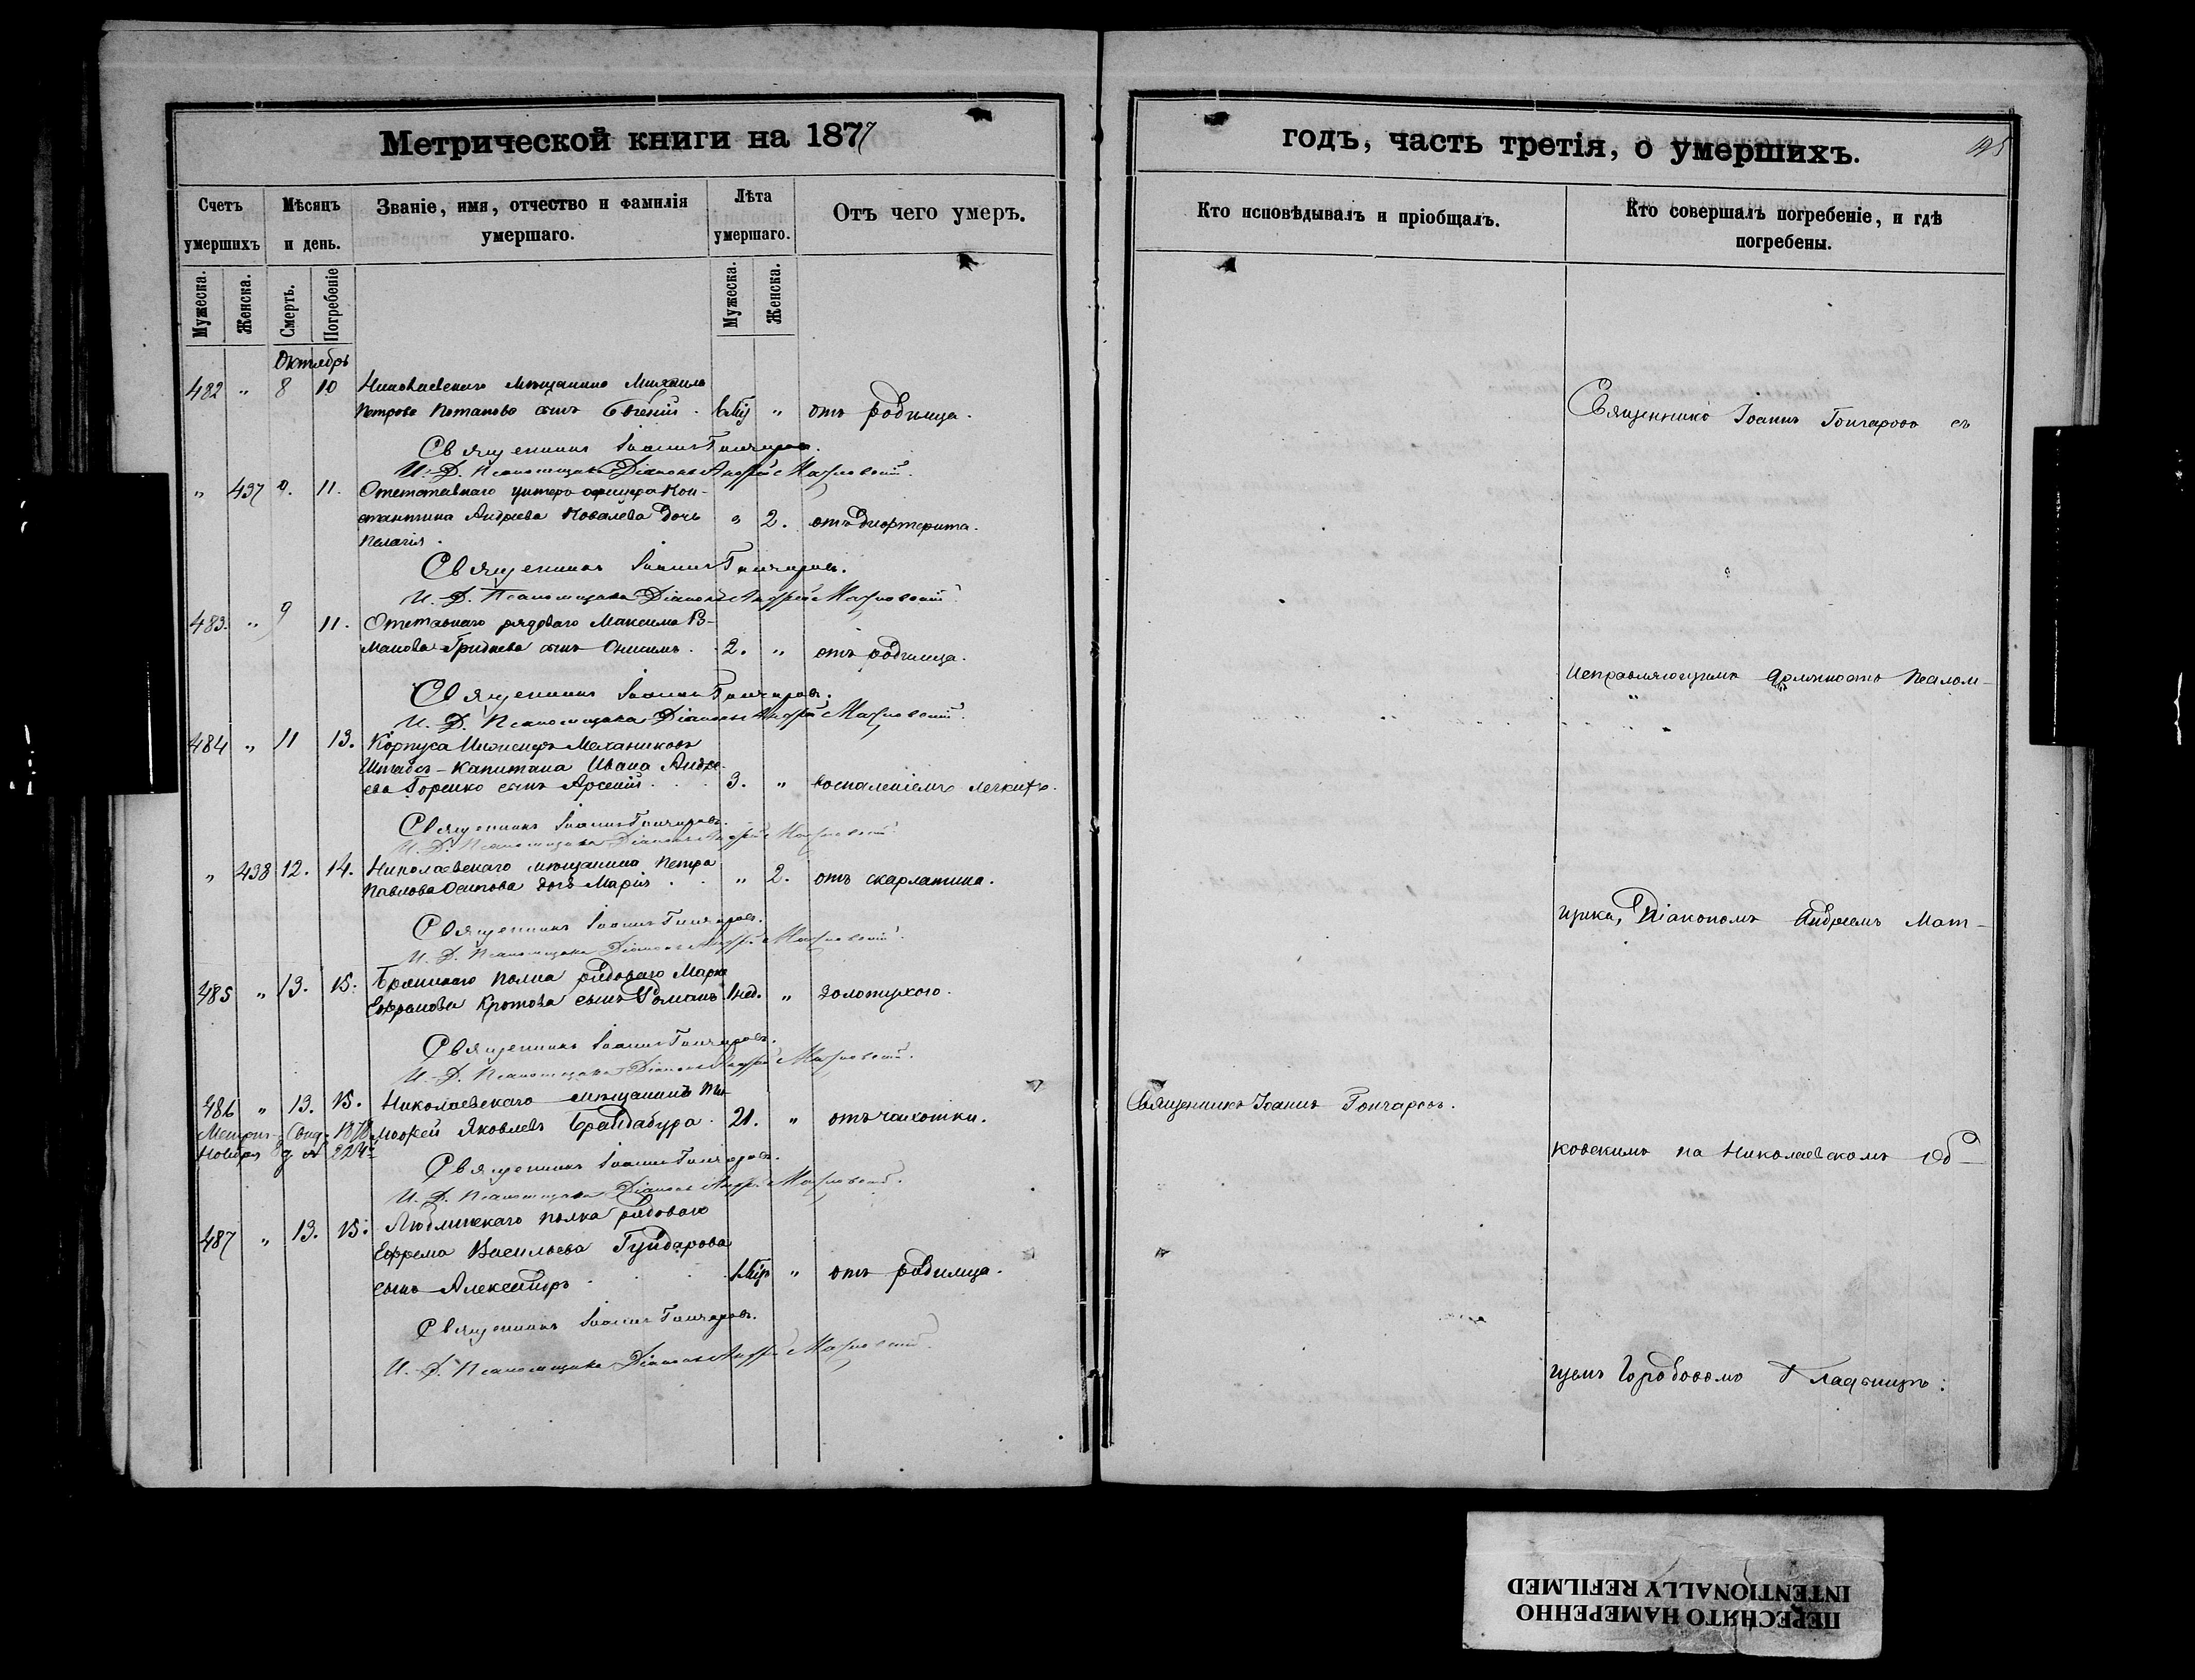 Метрической книги на 1877
годъ, часть третія, о умершихъ.
Счетъ умершихъ
Мѣсяцъ и день.
Званіе, имя, отчество и фамилія умершаго.
Лѣта умершаго.
Отъ чего умеръ.
Кто исповѣдывалъ и пріобщалъ.
Кто совершалъ погребеніе, и гдѣ погребены.
Мужеска.
Женска.
Смерть.
Погребеніе
Мужеска.
Женска.
Октябрь
482 " 8 10 Николаевскаго мѣщанина Михаила
Петрова Потапова сынъ Евгеній. " отъ родимца.
Священникъ Іоаннъ Гончаровъ.
И. Д. Псаломщика Діаконъ Андрей
" 437 9. 11. Отставнаго унтеръ офицера Кон-
стантина Андреева Ковалева дочь " 2. отъ дифтерита.
Пелагія.
Священникъ Іоаннъ Гончаровъ.
И. Д. Псаломщика Діаконъ Андрей
483. " 9 11. Отставнаго рядоваго Максима Ро-
манова Гриднева сынъ Онисимъ. 2. " отъ родимца.
Священникъ Іоаннъ Гончаровъ.
И. Д. Псаломщика Діаконъ Андрей
484 " 11 13. Корпуса Инженеръ Механиковъ
Штабсъ-Капитана Ивана Андре-
ева Горенко сынъ Арсеній. 3. " воспаленіемъ легкихъ.
Священникъ Іоаннъ Гончаровъ.
И. Д. Псаломщика Діаконъ Андрей
" 438 12. 14. Николаевскаго мѣщанина Петра
Павлова Осипова дочь Марія. " 2. отъ скарлатина.
Священникъ Іоаннъ Гончаровъ.
И. Д. Псаломщика Діаконъ Андрей
485 " 13. 15. полка рядоваго Марка
Кротова сынъ Романъ 1 нед. " золотухою.
Священникъ Іоаннъ Гончаровъ.
И. Д. Псаломщика Діаконъ Андрей
486 " 13. 15. Николаевскаго мѣщанинъ Ти-
мофей Яковлевъ Брандабура. 21. " отъ чахотки.
Священникъ Іоаннъ Гончаровъ.
И. Д. Псаломщика Діаконъ Андрей
487 " 13. 15. Люблинскаго полка рядоваго
Ефрема Васильева Гундарова
сынъ Александръ. " отъ родимца.
Священникъ Іоаннъ Гончаровъ.
И. Д. Псаломщика Діаконъ Андрей
Священникъ Іоаннъ Гончаровъ.
Священникъ Іоаннъ Гончаровъ съ
исправляющимъ должность псалом-
щика, Діакономъ Андреемъ Мат-
ковскимъ на Николаевскомъ об-
щемъ Городовомъ Кладбищѣ.
ПЕРЕСНЯТО НАМЕРЕННО
INTENTIONALLY REFILMED